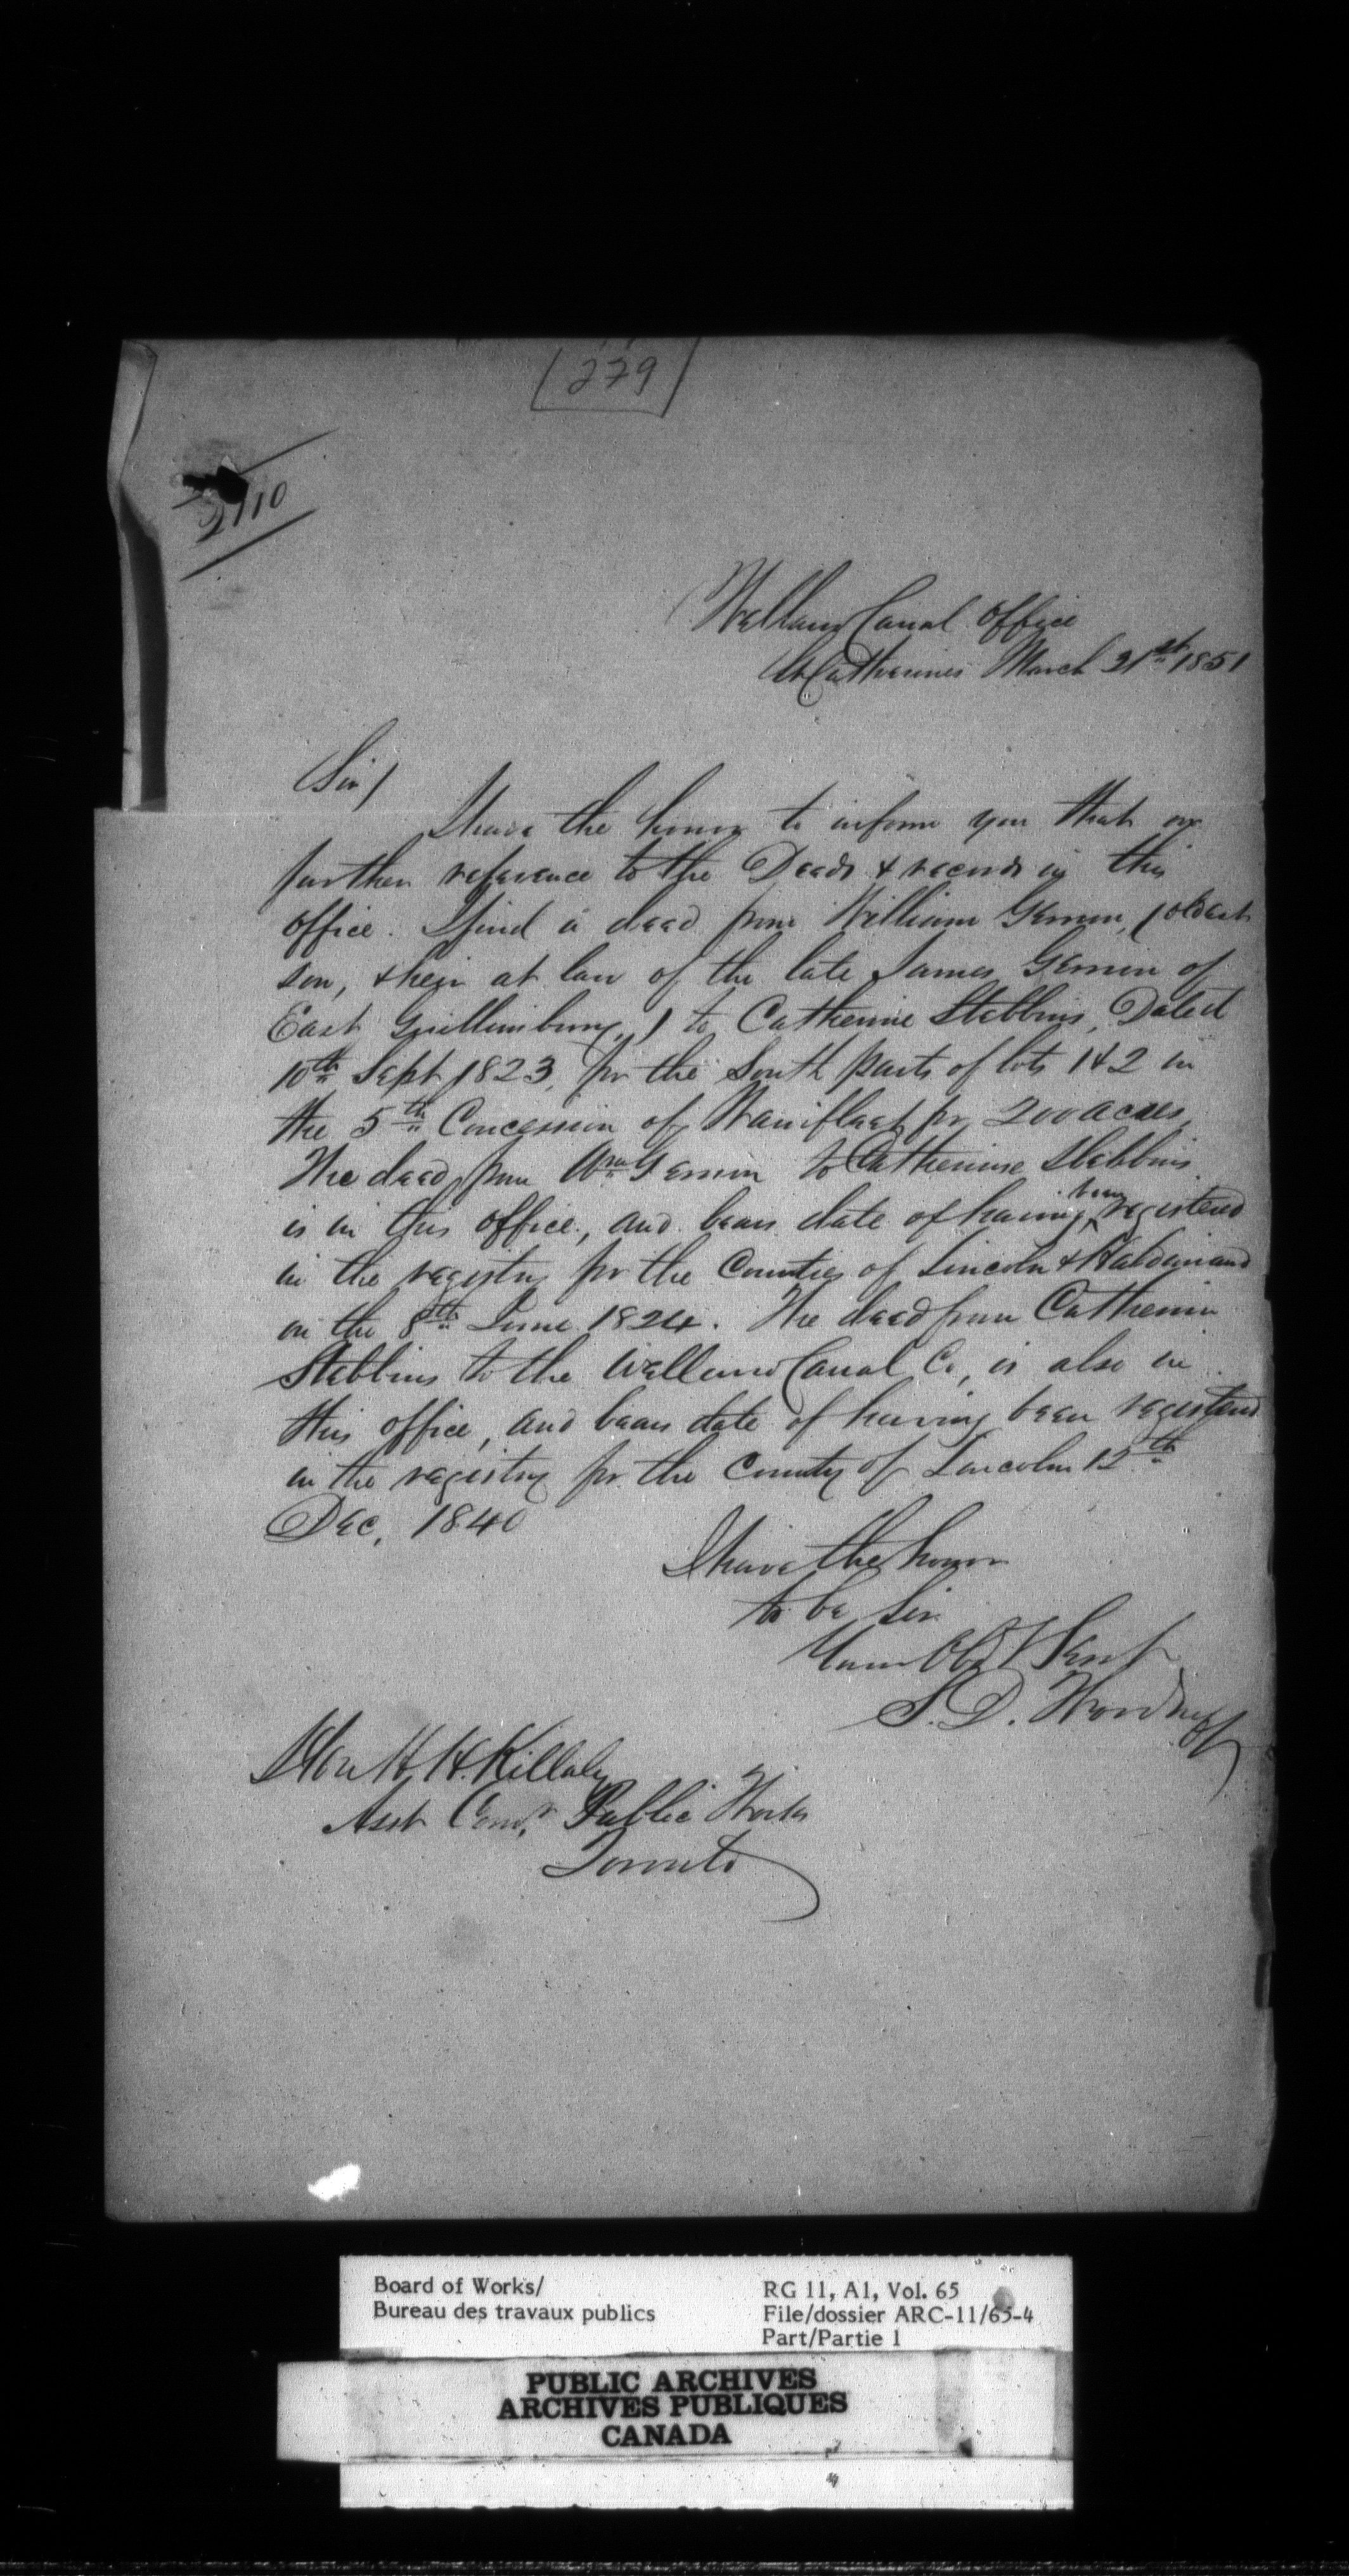 279
2110
Welland Canal Office
St Catharines March 21st 1851
Sir/
I have the honor to inform you that on
further reference to the Deeds & records in this
office. I find a deed from William Gemon, (oldest
son, & heir at law of the late James Gemon of
East Guillimbury,) to Catherine Stebbins, Dated
10th Sept 1823, for the South parts of lots 1 & 2 in
the 5th Concession of Wainfleet for 200 acres,
The deed from Wm Gemon to Catherine Stebbins
is in this office, and bears date of having been registered
in the registry for the Counties of Lincoln & Haldimand
on the 8th June 1824. The deed from Catherine
Stebbins to the Welland Canal Co, is also in
this office, and bears date of having been registered
in the registry for the County of Lincoln 12th
Dec, 1840
I have the honor
to be Sir
Your Obt Servt
S. D. Woodruff
Hon H. H. Killaly
Asst Comr Public Works
Toronto
Board of Works/
Bureau des travaux publics
RG 11, A1, Vol. 65
File/dossier ARC-11/65-4
Part/Partie 1
PUBLIC ARCHIVES
ARCHIVES PUBLIQUES
CANADA